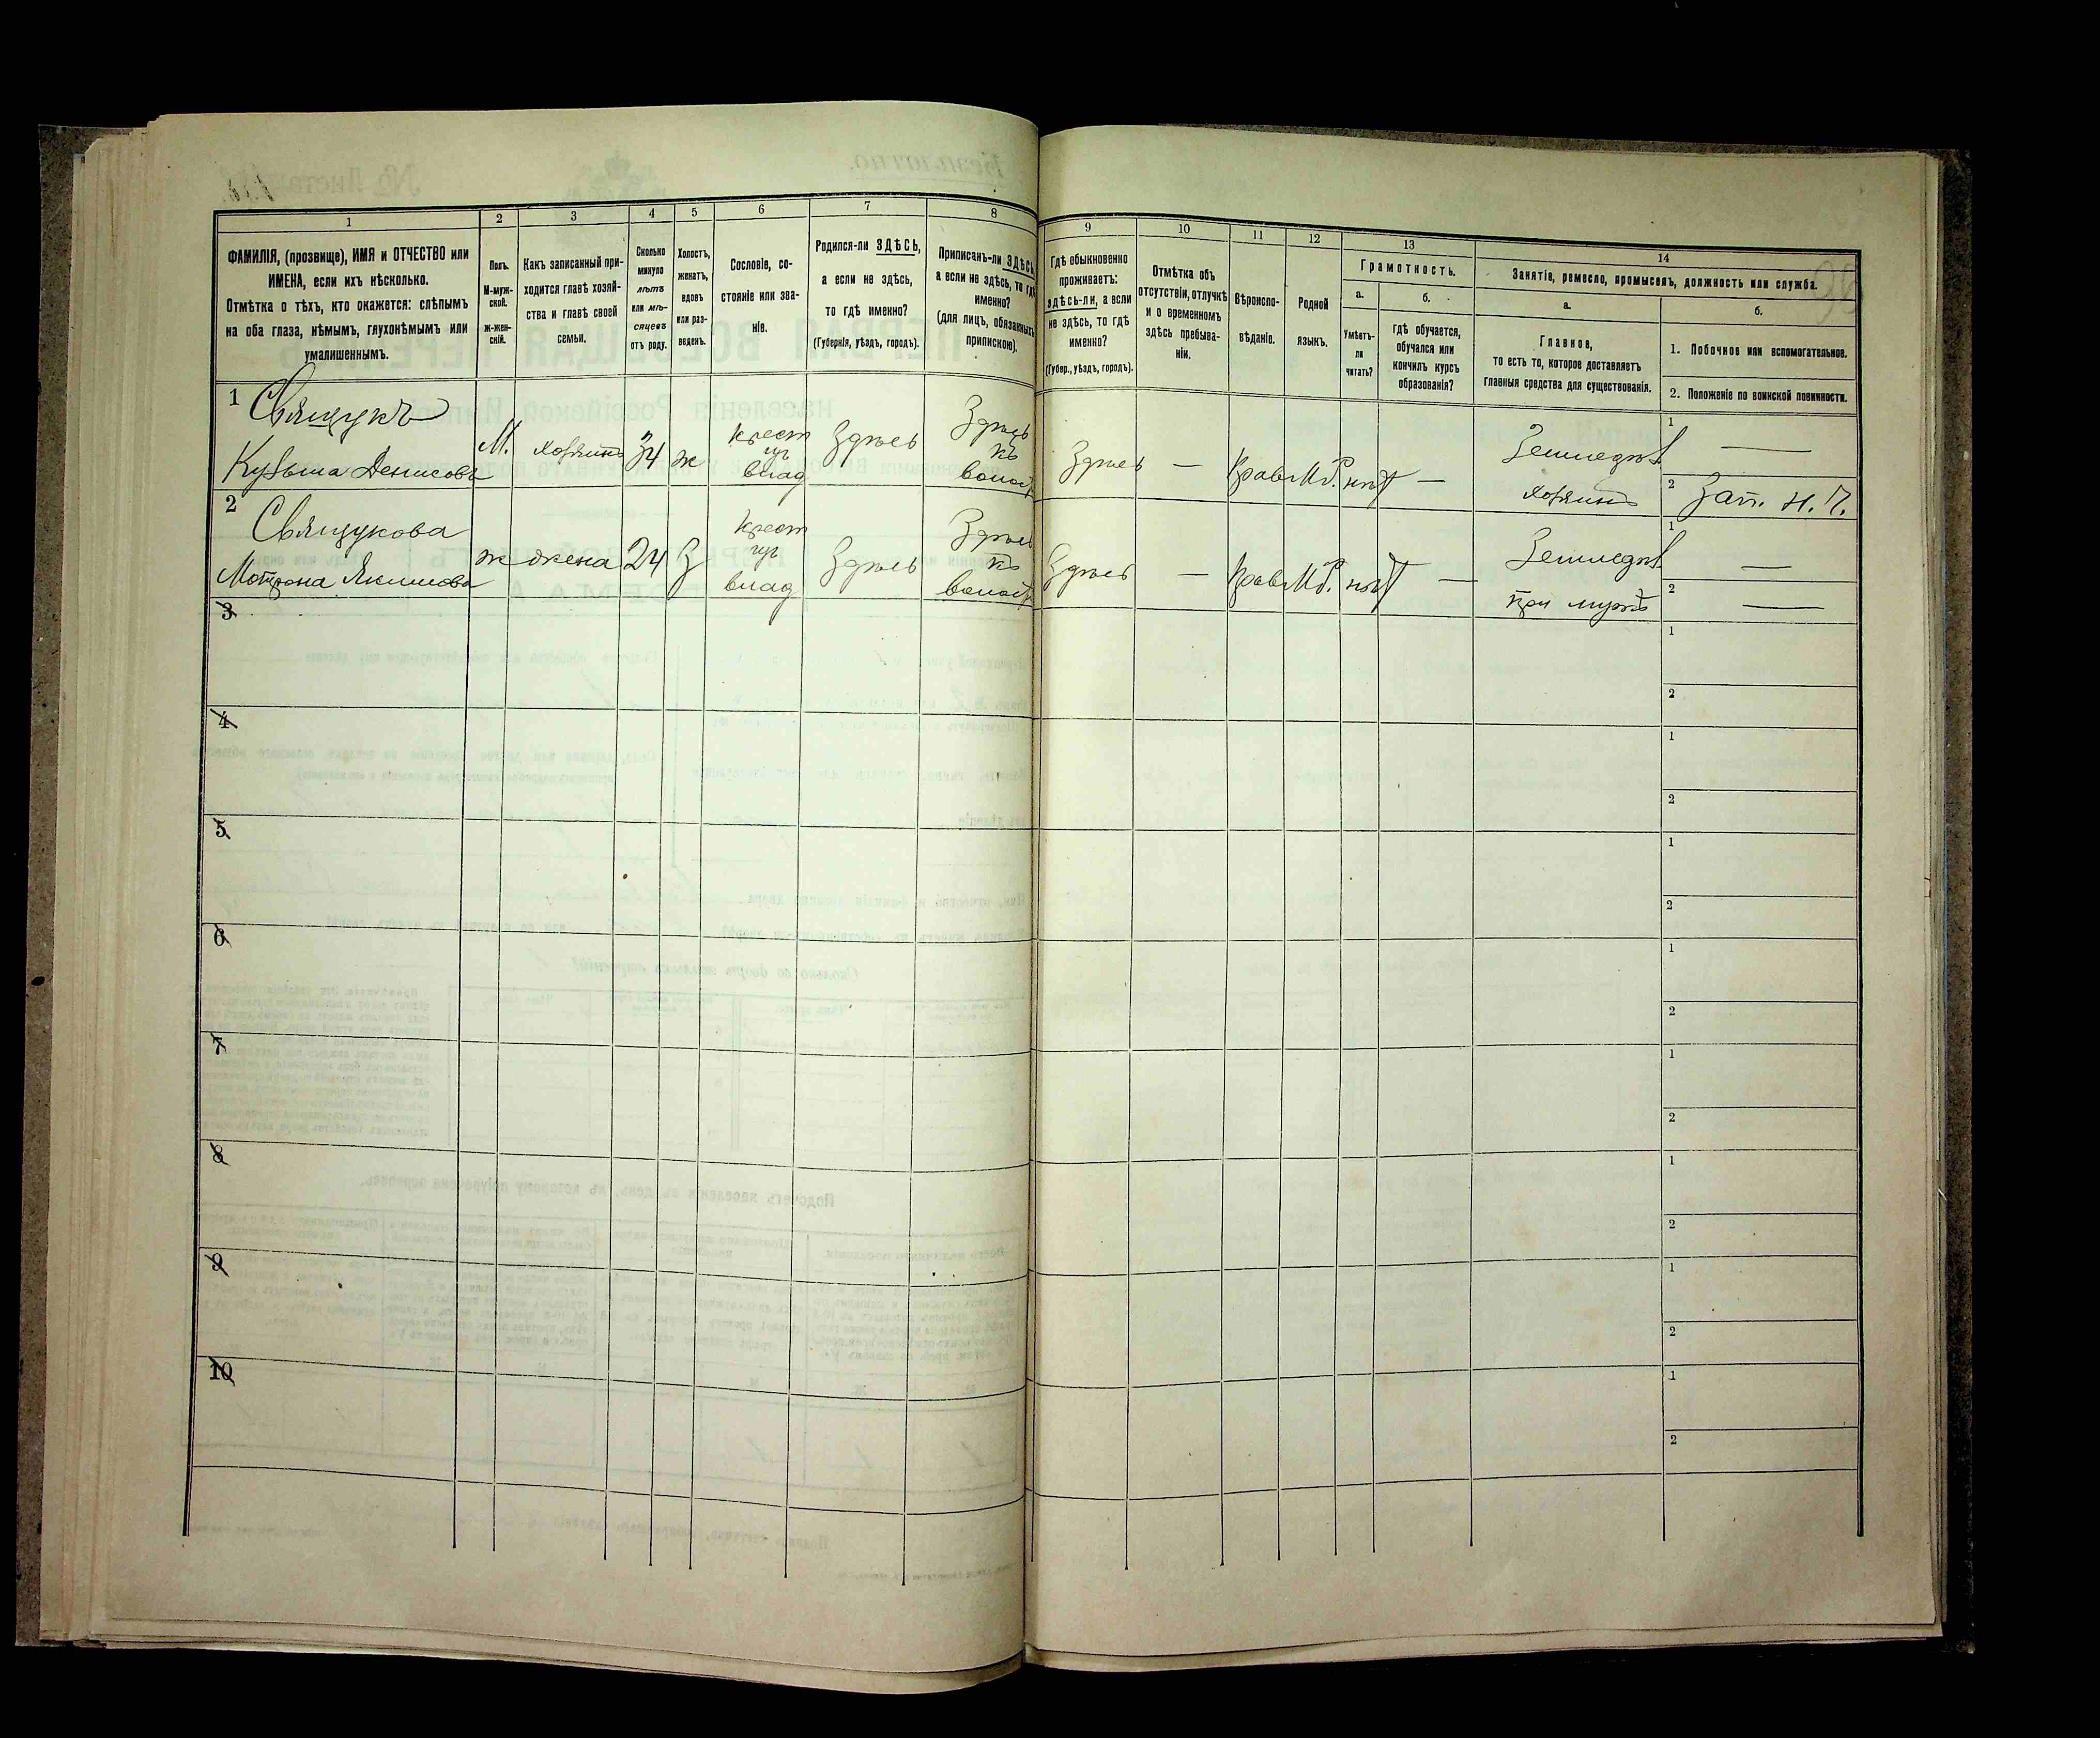 1 2 3 4 5 6 7 8 9 10 11 12 13 14
ФАМИЛІЯ, (прозвище), ИМЯ и ОТЧЕСТВО или
ИМЕНА, если ихъ нѣсколько.
Отмѣтка о тѣхъ, кто окажется: слѣпымъ
на оба глаза, нѣмымъ, глухонѣмымъ или
умалишеннымъ.
Полъ.
М-муж-
ской.
ж-жен-
скій.
Какъ записанный при-
ходится главѣ хозяй-
ства и главѣ своей
семьи.
Сколько
минуло
лѣтъ
или мѣ-
сяцевъ
отъ роду.
Холостъ,
женатъ,
вдовъ
или раз-
веденъ.
Сословіе, со-
стояніе или зва-
ніе.
Родился-ли ЗДѢСЬ,
а если не здѣсь,
то гдѣ именно?
(Губернія, уѣздъ, городъ).
Приписанъ-ли ЗДѢСЬ,
а если не здѣсь, то гдѣ
именно?
(для лицъ, обязанныхъ
припискою).
Гдѣ обыкновенно
проживаетъ:
здѣсь-ли, а если
не здѣсь, то гдѣ
именно?
(Губер., уѣздъ, городъ).
Отмѣтка объ
отсутствіи, отлучкѣ
и о временномъ
здѣсь пребыва-
ніи.
Вѣроиспо-
вѣданіе.
Родной
языкъ.
Грамотность.
а.
Умѣетъ-
ли
читать?
б.
гдѣ обучается,
обучался или
кончилъ курсъ
образованія?
Занятіе, ремесло, промыселъ, должность или служба.
а.
Главное,
то есть то, которое доставляетъ
главныя средства для существованія.
б.
1. Побочное или вспомогательное.
2. Положеніе по воинской повинности.
1 Свящукъ
Кузьма Денисовъ
М. хозяинъ 34 ж
крест
влад
Здѣсь
Здѣсь
къ
волост
Здѣсь — Прав М.Р. нѣт —
Земледѣл
хозяинъ
1 —
2 Зап. Н. Ч.
2 Свящукова
Мотрона Якимова
ж жена 24 З
крест
влад
Здѣсь
Здѣсь
къ
волост
Здѣсь — Прав М.Р. нѣт —
Земледѣл
при мужѣ
1 —
2 —
3
1
2
4
1
2
5
1
2
6
1
2
7
1
2
8
1
2
9
1
2
10
1
2